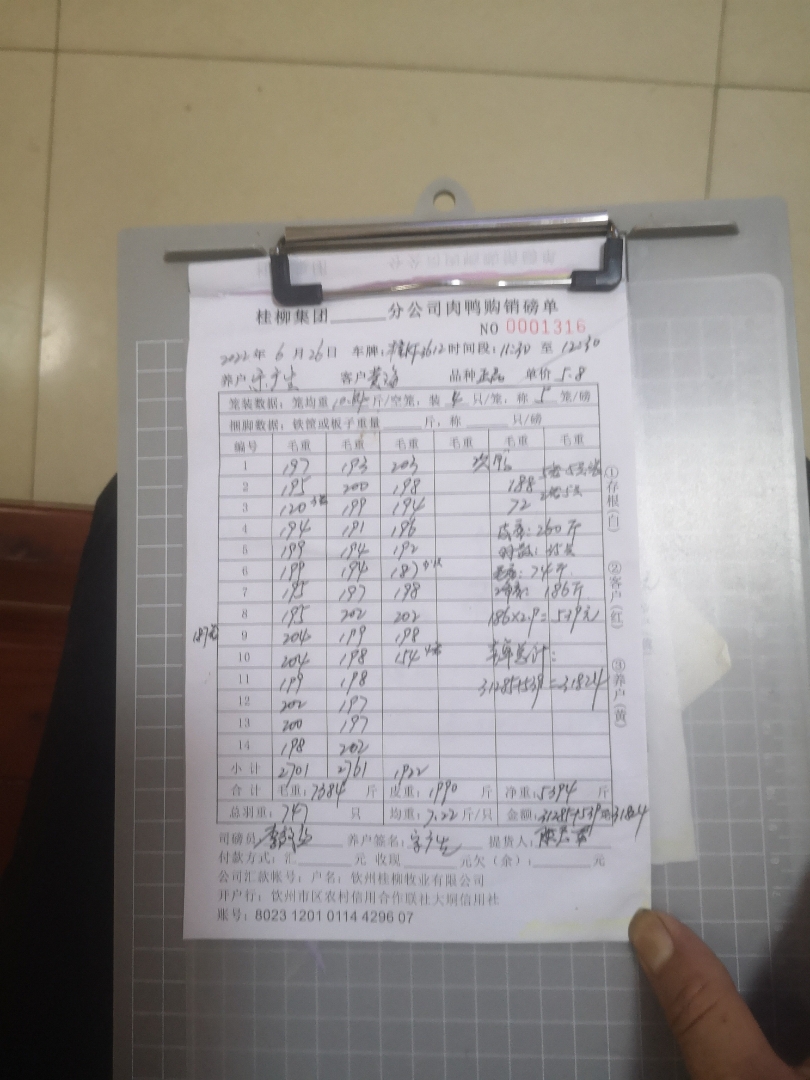 桂柳集团______分公司肉鸭购销磅单
NO 0001316
2022年 6月26日 车牌: 时间段:11:30 至 12:30
养户 客户 黄海 品种 正品 单价 5.8
笼装数据:笼均重 斤/空笼,装 4 只/笼,称 5 笼/磅
捆脚数据:铁筐或板子重量______斤,称______只/磅
编号 毛重 毛重 毛重 毛重 毛重 毛重
1 197 193 203 次鸭
2 195 200 198 188
3 120 199 194 72
4 194 191 196 260斤
5 199 194 192 35只
6 199 194 187 74斤
7 195 197 198 186斤
8 195 202 202 186×2.9=539元
9 204 199 198
10 204 198 154 总计:
11 199 198 31285+539=31824
12 202 197
13 200 197
14 198 202
小计 2701 2761 1922
合计 毛重:7384 斤 皮重:1990 斤 净重:5394 斤
总羽重:747 只 均重:7.22斤/只 金额:31285+539=31824
司磅员 养户签名: 提货人:
付款方式:汇______元 收现______元欠(余):______元
公司汇款帐号:户名:钦州桂柳牧业有限公司
开户行:钦州市区农村信用合作联社大垌信用社
账号:8023 1201 0114 4296 07
①存根(白) ②客户(红) ③养户(黄)